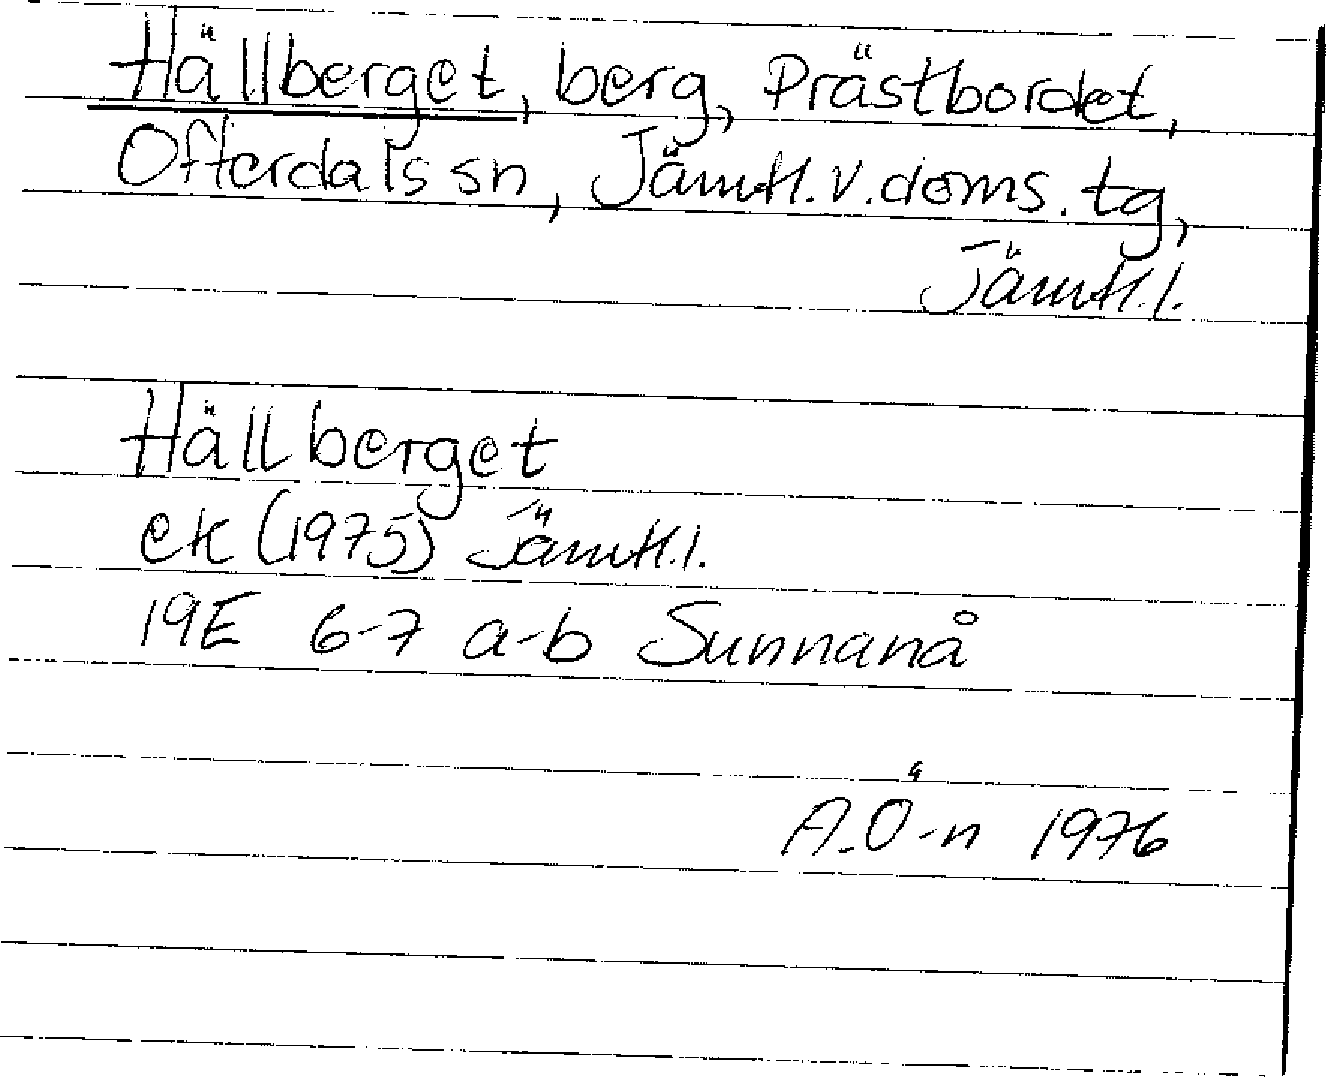 Hällberget, berg, Prästbordet,
Offerdals sn, Jämtl. v. doms. tg,
Jämtl. l.
Hällberget
ek (1975) Jämtl. l.
19E 6-7 a-b Sunnanå
A. Ö-n 1976